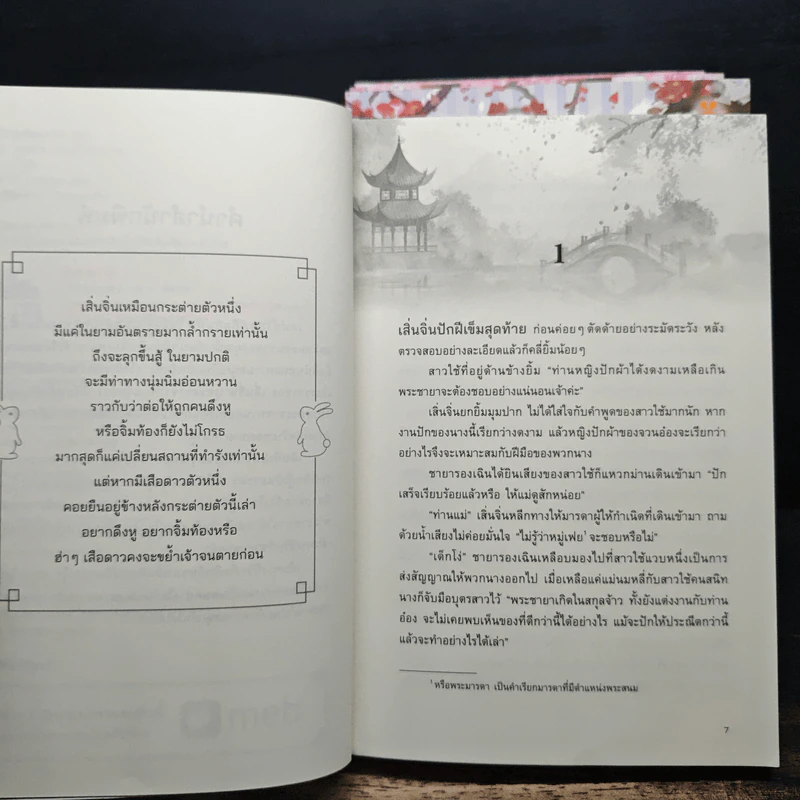 เสิ่นจิ่นเหมือนกระต่ายตัวหนึ่ง
มีแค่ในยามอันตรายมากล้ำกรายเท่านั้น
ถึงจะลุกขึ้นสู้ ในยามปกติ
จะมีท่าทางนุ่มนิ่มอ่อนหวาน
ราวกับว่าต่อให้ถูกคนดึงหู
หรือจิ้มท้องก็ยังไม่โกรธ
มากสุดก็แค่เปลี่ยนสถานที่ทำรังเท่านั้น
แต่หากมีเสือดาวตัวหนึ่ง
คอยยืนอยู่ข้างหลังกระต่ายตัวนี้เล่า
อยากดึงหู อยากจิ้มท้องหรือ
ฮ่าๆ เสือดาวคงจะขย้ำเจ้าจนตายก่อน
1
เสิ่นจิ่นปักฝีเข็มสุดท้าย ก่อนค่อยๆ ตัดด้ายอย่างระมัดระวัง หลัง
ตรวจสอบอย่างละเอียดแล้วก็คลี่ยิ้มน้อยๆ
สาวใช้ที่อยู่ด้านข้างยิ้ม "ท่านหญิงปักผ้าได้งดงามเหลือเกิน
พระชายาจะต้องชอบอย่างแน่นอนเจ้าค่ะ"
เสิ่นจิ่นยกยิ้มมุมปาก ไม่ได้ใส่ใจกับคำพูดของสาวใช้มากนัก หาก
งานปักของนางนี้เรียกว่างดงาม แล้วหญิงปักผ้าของจวนอ๋องจะเรียกว่า
อย่างไรจึงจะเหมาะสมกับฝีมือของพวกนาง
ชายารองเฉินได้ยินเสียงของสาวใช้ก็แหวกม่านเดินเข้ามา "ปัก
เสร็จเรียบร้อยแล้วหรือ ให้แม่ดูสักหน่อย"
"ท่านแม่" เสิ่นจิ่นหลีกทางให้มารดาผู้ให้กำเนิดที่เดินเข้ามา ถาม
ด้วยน้ำเสียงไม่ค่อยมั่นใจ "ไม่รู้ว่าหมู่เฟย¹ จะชอบหรือไม่"
"เด็กโง่" ชายารองเฉินเหลือบมองไปที่สาวใช้แวบหนึ่งเป็นการ
ส่งสัญญาณให้พวกนางออกไป เมื่อเหลือแค่แม่นมหลี่กับสาวใช้คนสนิท
นางก็จับมือบุตรสาวไว้ "พระชายาเกิดในสกุลจ้าว ทั้งยังแต่งงานกับท่าน
อ๋อง จะไม่เคยพบเห็นของที่ดีกว่านี้ได้อย่างไร แม้จะปักให้ประณีตกว่านี้
แล้วจะทำอย่างไรได้เล่า"
¹ หรือพระมารดา เป็นคำเรียกมารดาที่มีตำแหน่งพระสนม
7